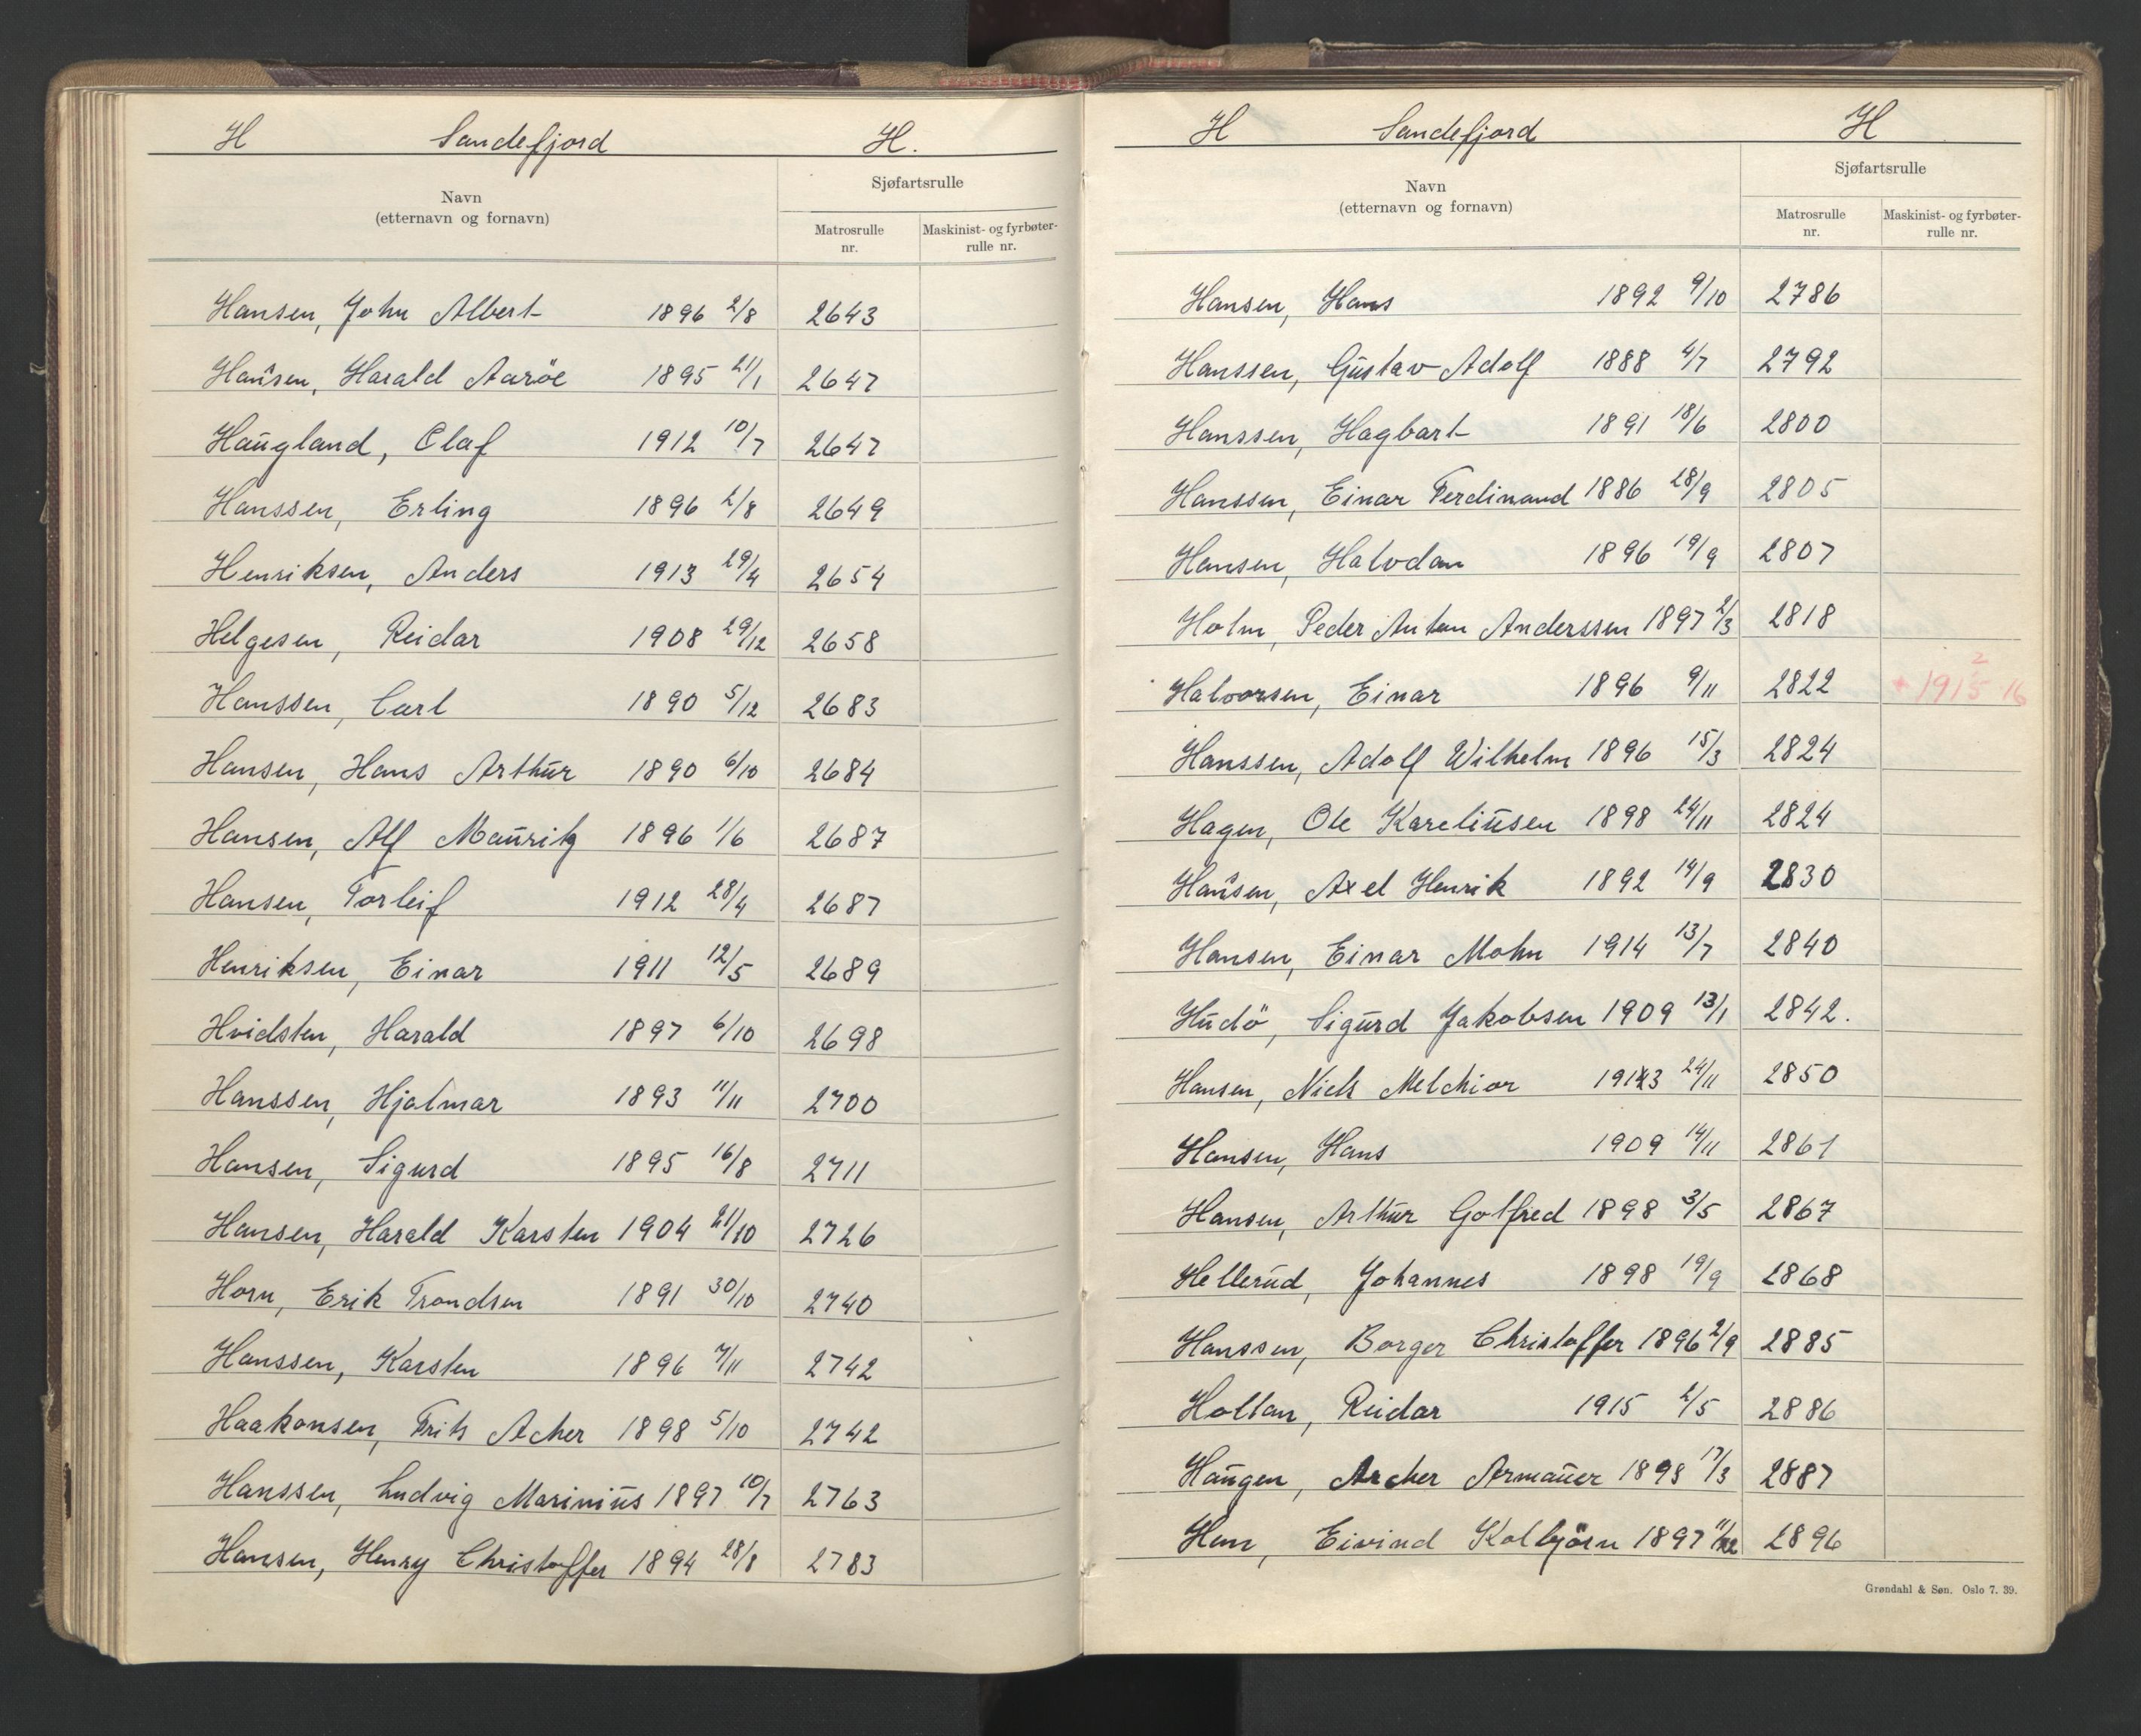 H Sandefjord H.
Sjøfartsrulle
Navn
(etternavn og fornavn)
Matrosrulle nr. Maskinist- og fyrbøter-rulle nr.
Hansen, John Albert 1896 2/8 2643
Hansen, Harald Aaröe 1895 21/1 2647
Haugland, Olaf 1912 10/7 2647
Hanssen, Erling 1896 2/8 2649
Henriksen, Anders 1913 29/4 2654
Helgesen, Reidar 1908 29/12 2658
Hanssen, Carl 1890 5/12 2683
Hansen, Hans Arthur 1890 6/10 2684
Hansen, Alf Mauritz 1896 1/6 2687
Hansen, Torleif 1912 28/4 2687
Henriksen, Einar 1911 12/5 2689
Hvidsten, Harald 1897 6/10 2698
Hanssen, Hjalmar 1893 11/11 2700
Hansen, Sigurd 1895 16/8 2711
Hansen, Harald Karsten 1904 21/10 2726
Horn, Erik Trondsen 1891 30/10 2740
Hanssen, Karsten 1896 7/11 2742
Haakonsen, Frits Acher 1898 5/10 2742
Hanssen, Ludvig Marinius 1897 10/7 2763
Hansen, Henry Christoffer 1894 28/8 2783
H Sandefjord H
Sjøfartsrulle
Navn
(etternavn og fornavn)
Matrosrulle nr. Maskinist- og fyrbøter-rulle nr.
Hansen, Hans 1892 9/10 2786
Hanssen, Gustav Adolf 1888 4/7 2792
Hanssen, Hagbart 1891 18/6 2800
Hanssen, Einar Ferdinand 1886 28/9 2805
Hansen, Halvdan 1896 19/9 2807
Holm, Peder Anton Anderssen 1897 2/3 2818
Halvorsen, Einar 1896 9/11 2822
Hanssen, Adolf Wilhelm 1896 15/3 2824
Hagen, Ole Kareliusen 1898 24/11 2824
Hansen, Axel Henrik 1892 14/9 2830
Hansen, Einar Mohn 1914 13/7 2840
Hudö, Sigurd Jakobsen 1909 13/1 2842.
Hansen, Niels Melchior 24/11 2850
Hansen, Hans 1909 14/11 2861
Hansen, Arthur Gotfred 1898 3/5 2867
Hellerud, Johannes 1898 19/9 2868
Hanssen, Borger Christoffer 1896 2/9 2885
Holtan, Reidar 1915 2/5 2886
Haugen, Archer Armauer 1898 17/3 2887
Hem, Eivind Kolbjörn 1897 11/12 2896
Grøndahl & Søn. Oslo 7. 39.